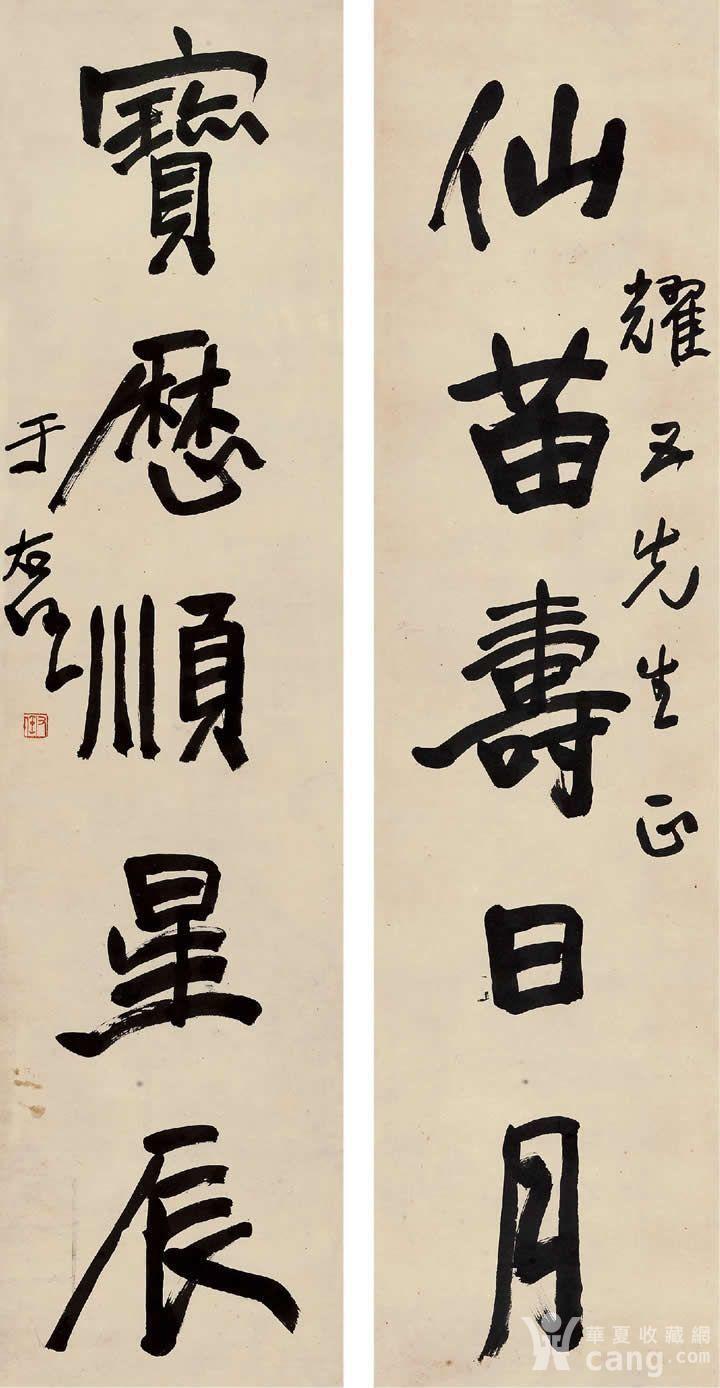 仙苗壽日月
耀五先生正
寶歷順星辰
于右任
右任
華夏收藏網
cang.com